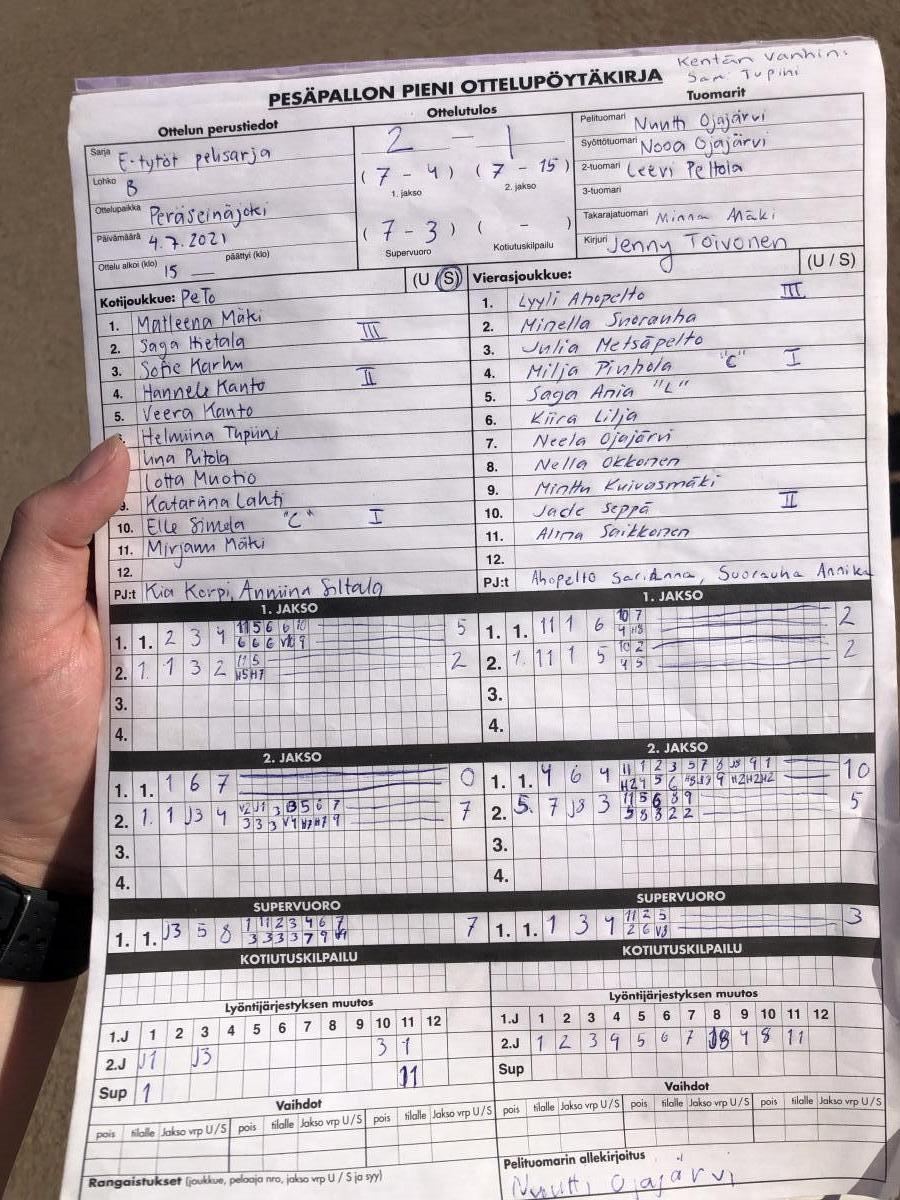 Kentän vanhin:
Sari Tupini
PESÄPALLON PIENI OTTELUPÖYTÄKIRJA
Ottelun perustiedot
Ottelutulos
Tuomarit
Sarja E-tytöt pelisarja
Lohko B
Ottelupaikka Peräseinäjoki
Päivämäärä 4.7.2021
Ottelu alkoi (klo) 15 päättyi (klo)
2 - 1
( 7 - 4 ) ( 7 - 15 )
1. jakso 2. jakso
( 7 - 3 ) ( - )
Supervuoro Kotiutuskilpailu
Pelituomari Nuutti Ojajärvi
Syöttötuomari Nooa Ojajärvi
2-tuomari Leevi Peltola
3-tuomari
Takarajatuomari Minna Mäki
Kirjuri Jenny Toivonen
Kotijoukkue: PeTo (U / S)
1. Matleena Mäki
2. Saga Hietala III
3. Sofie Karhu
4. Hannele Kanto II
5. Veera Kanto
Helmiina Tupiini
Lotta Muotio
9. Katariina Lahti
10. Elle Simela "C" I
11. Mirjami Mäki
12.
PJ:t Kia Korpi, Anniina Siltala
Vierasjoukkue: (U / S)
1. Lyyli Ahopelto III
2. Minella Suorauha
3. Julia Metsäpelto
4. Milja Pinhola "C" I
5. Saga Ania "L"
6. Kiira Lilja
7. Neela Ojajärvi
8. Nella Okkonen
9. Minttu Kuivasmäki
10. Jade Seppä II
11. Alina Saikkonen
12.
PJ:t Ahopelto Sarianna, Suorauha Annika
1. JAKSO
1. 1. 2 3 4 5
2. 1. 1 3 2 2
3.
4.
1. JAKSO
1. 1. 11 1 6 2
2. 1. 11 1 5 2
3.
4.
2. JAKSO
1. 1. 1 6 7 0
2. 1. 1 J3 4 7
3.
4.
2. JAKSO
1. 1. 4 6 4 10
2. 5. 7 J8 3 5
3.
4.
SUPERVUORO
1. 1. J3 5 8 7
SUPERVUORO
1. 1. 1 3 4 3
KOTIUTUSKILPAILU
KOTIUTUSKILPAILU
Lyöntijärjestyksen muutos
1.J 1 2 3 4 5 6 7 8 9 10 11 12
2.J J1 J3 3 1
Sup 1 11
Lyöntijärjestyksen muutos
1.J 1 2 3 4 5 6 7 8 9 10 11 12
2.J 1 2 3 4 5 6 7 J8 9 8 11
Sup
Vaihdot
pois tilalle Jakso vrp U / S pois tilalle Jakso vrp U / S pois tilalle Jakso vrp U / S
Vaihdot
pois tilalle Jakso vrp U / S pois tilalle Jakso vrp U / S pois tilalle Jakso vrp U / S
Rangaistukset (joukkue, pelaaja nro, jakso vrp U / S ja syy)
Pelituomarin allekirjoitus
Nuutti Ojajärvi